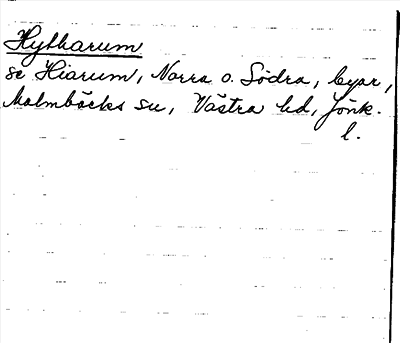 Hytharum
se Hiarum, Norra o. Södra, byar,
Malmbäcks sn, Västra hd, Jönk.
l.